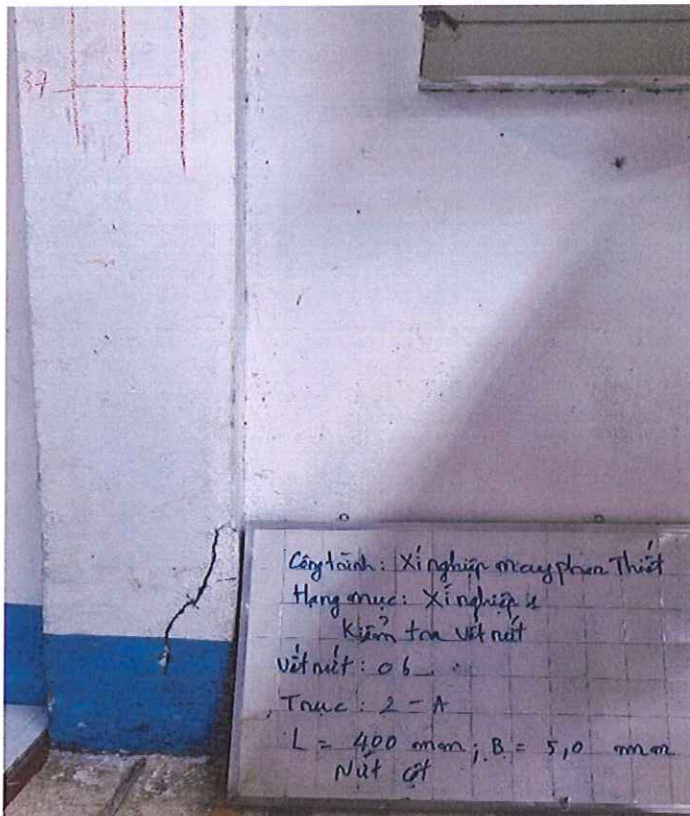 37
Công trình: Xí nghiệp may phan Thiết
Hạng mục: Xí nghiệp
Kiểm tra vết nứt
Vết nứt: 06
Trục: 2 - A
L = 400 mm; B = 5,0 mm
Nứt cột